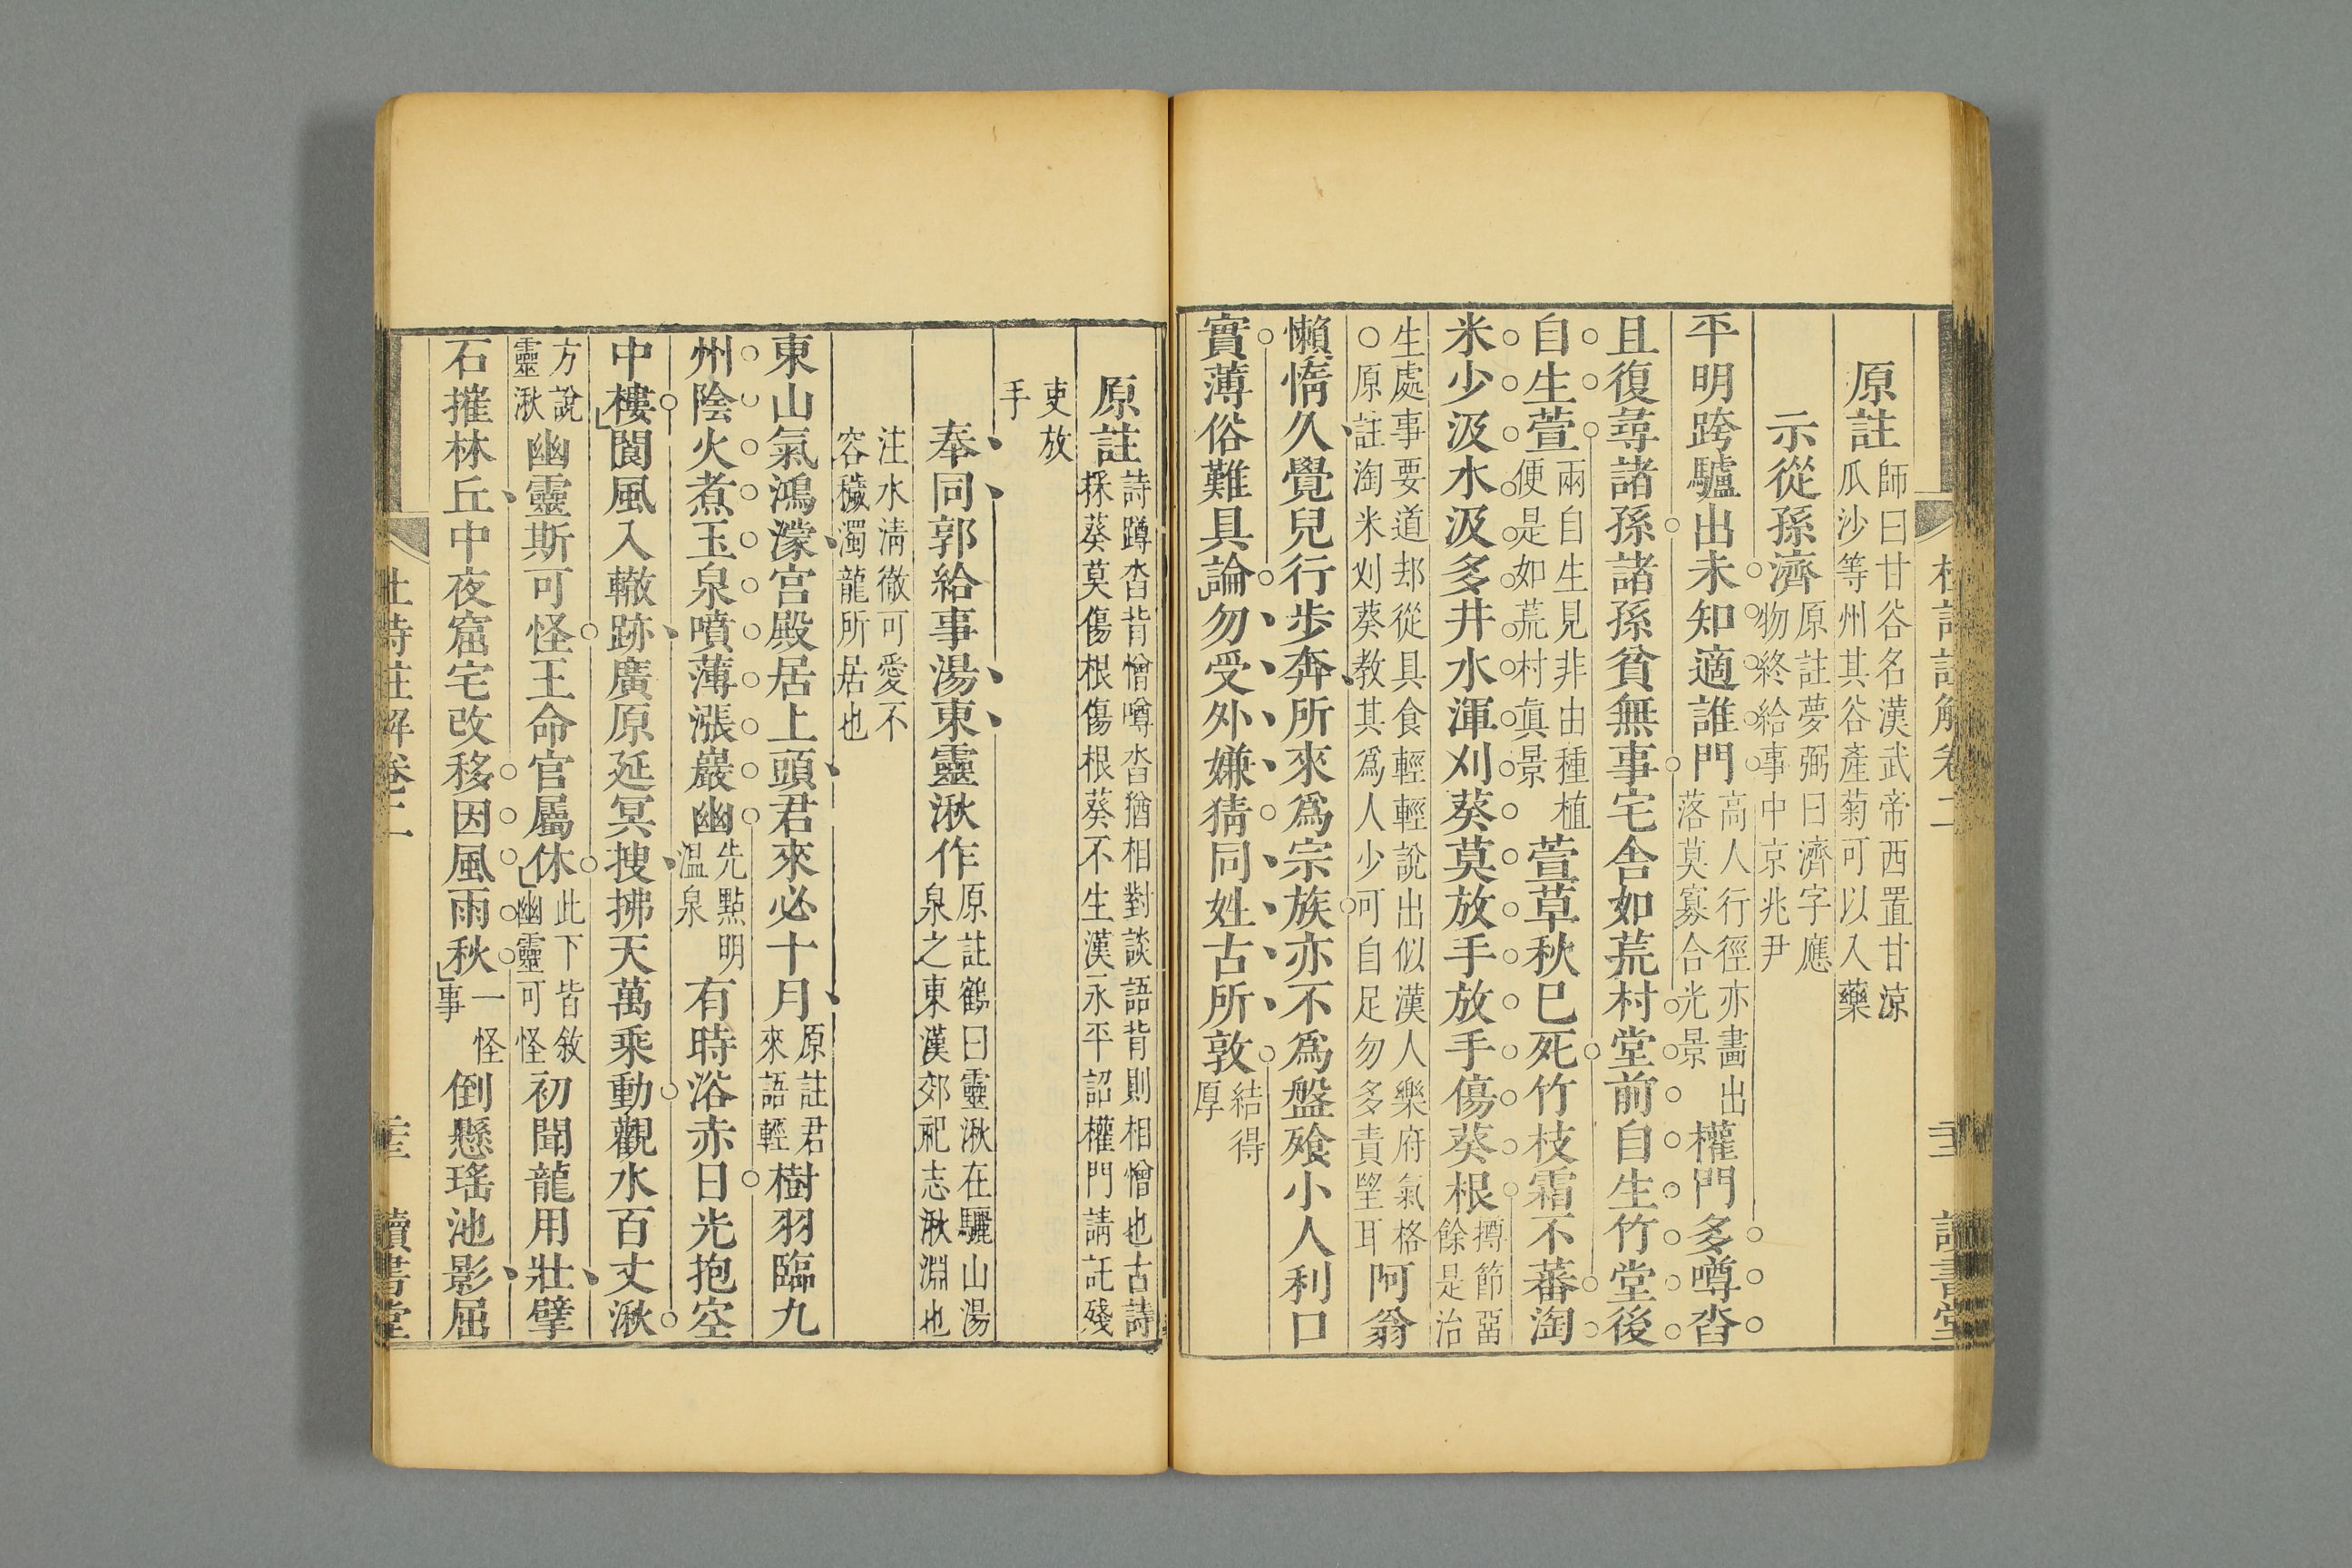 杜詩註解卷二
讀書堂
原註
師曰甘谷名漢武帝西置甘涼
瓜沙等州其谷產菊可以入藥
示從孫濟
原註夢弼曰濟字應
物終給事中京兆尹
平明跨驢出未知適誰門
高人行徑亦畵出
落莫寡合光景
權門多噂沓
且復尋諸孫諸孫貧無事宅舍如荒村堂前自生竹堂後
自生萱
兩自生見非由種植
便是如荒村眞景
萱草秋已死竹枝霜不蕃淘
米少汲水汲多井水渾刈葵莫放手放手傷葵根
撙節嗇
餘是治
生處事要道却從具食輕輕說出似漢人樂府氣格
○原註淘米刈葵教其爲人少可自足勿多責望耳
阿翁
懶惰久覺兒行步奔所來爲宗族亦不爲盤飱小人利口
實薄俗難具論勿受外嫌猜同姓古所敦
結得
厚
原註
詩蹲沓背憎噂沓猶相對談語背則相憎也古詩
採葵莫傷根傷根葵不生漢永平詔權門請託殘
吏放
手
奉同郭給事湯東靈湫作
原註鶴曰靈湫在驪山湯
泉之東漢郊祀志湫淵也
注水淸徹可愛不
容穢濁龍所居也
東山氣鴻濛宮殿居上頭君來必十月
原註君
來語輕
樹羽臨九
州陰火煮玉泉噴薄漲巖幽
先點明
温泉
有時浴赤日光抱空
中樓閬風入轍跡廣原延冥搜拂天萬乘動觀水百丈湫
方說
靈湫
幽靈斯可怪王命官屬休
此下皆敘
幽靈可怪
初聞龍用壯擘
石摧林丘中夜窟宅改移因風雨秋
一怪
事
倒懸瑤池影屈
杜詩註解卷二
讀書堂